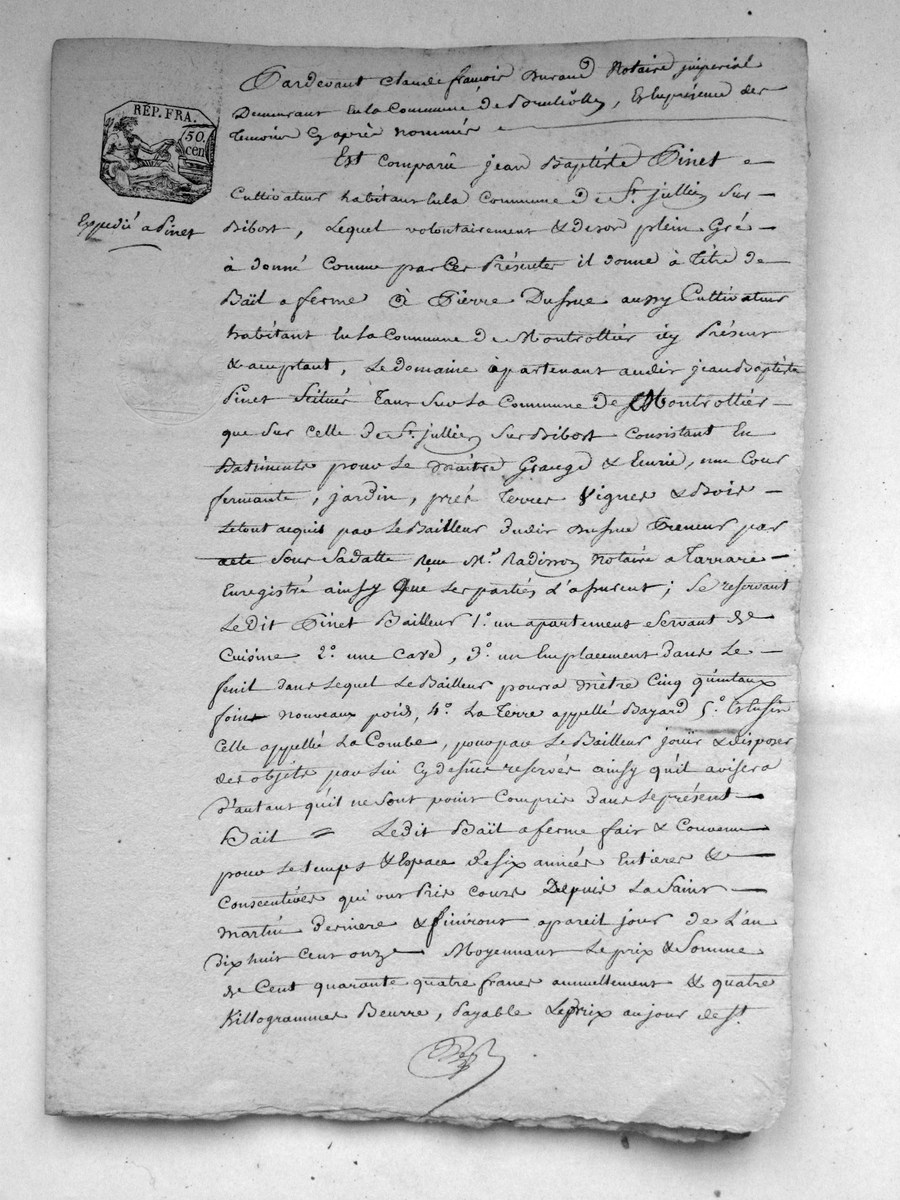 RÉP. FRA.
50.
cen
Expedié a Pinet
Pardevant Claude françois Durand Notaire imperial
Demeurant en la Commune de , Et En présence des
temoins Cy après nommés
Est Comparû jean Baptiste Pinet
Cultivateur habitant En la Commune De St. jullien Sur
Bibost, Lequel volontairement & de son plein Gré
à donné Comme par Ces Présentes il donne à titre de
Bail a ferme à Pierre Dussue aussy Cultivateur
habitant En La Commune De Montrottier icy Présent
& acceptant, Le domaine apartenant audit jean Baptiste
Pinet Scitués Tant Sur La Commune De Montrottier
que Sur celle de St. jullien Sur Bibost Consistant En
Batiments pour Le maitre Grange & Ecurie, une Cour
fermante, jardin, prés terres Vignes & Bois
Le tout acquis par Le Bailleur dudit Dussue Preneur par
acte Sous Sa datte Reçu Me. Radisson Notaire a Tarrare
Enregistré ainsy Que Les parties L'assurent; Se reservant
Le Dit Pinet Bailleur 1.° un apartement Servant de
Cuisine 2.° une Cave, 3.° un Emplacement dans Le
fenil dans Lequel Le Bailleur pourra mètre Cinq quintaux
foins nouveaux poids, 4.° La Terre appellé Bayard 5.° Et Enfin
Celle appellé La Combe, pour par Le Bailleur jouir & disposer
des objets par Lui Cy dessus reservés ainsy qu'il avisera
D'autant qu'il ne Sont point Compris dans Le présent
Bail = Le dit Bail a ferme fait & Convenu
pour Le temps & Espace de Six années Entieres &
Consecutives qui ont Pris cours Depuis La Saint
Martin derniere & finiront a pareil jour de L'an
dix huit Cent onze Moyennant Le prix & Somme
de Cent quarante quatre francs annuellement & quatre
Killogrammes Beurre, Payable Le prix au jour de St.